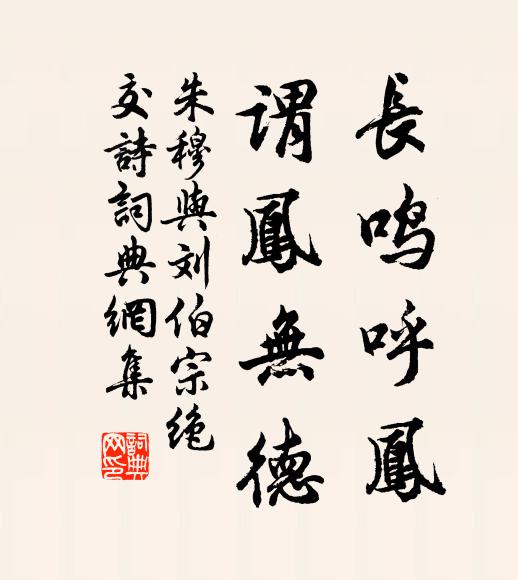 長鸣呼鳳
謂鳳無德
朱穆與刘伯宗绝
交詩詞典網集
詞典
网印